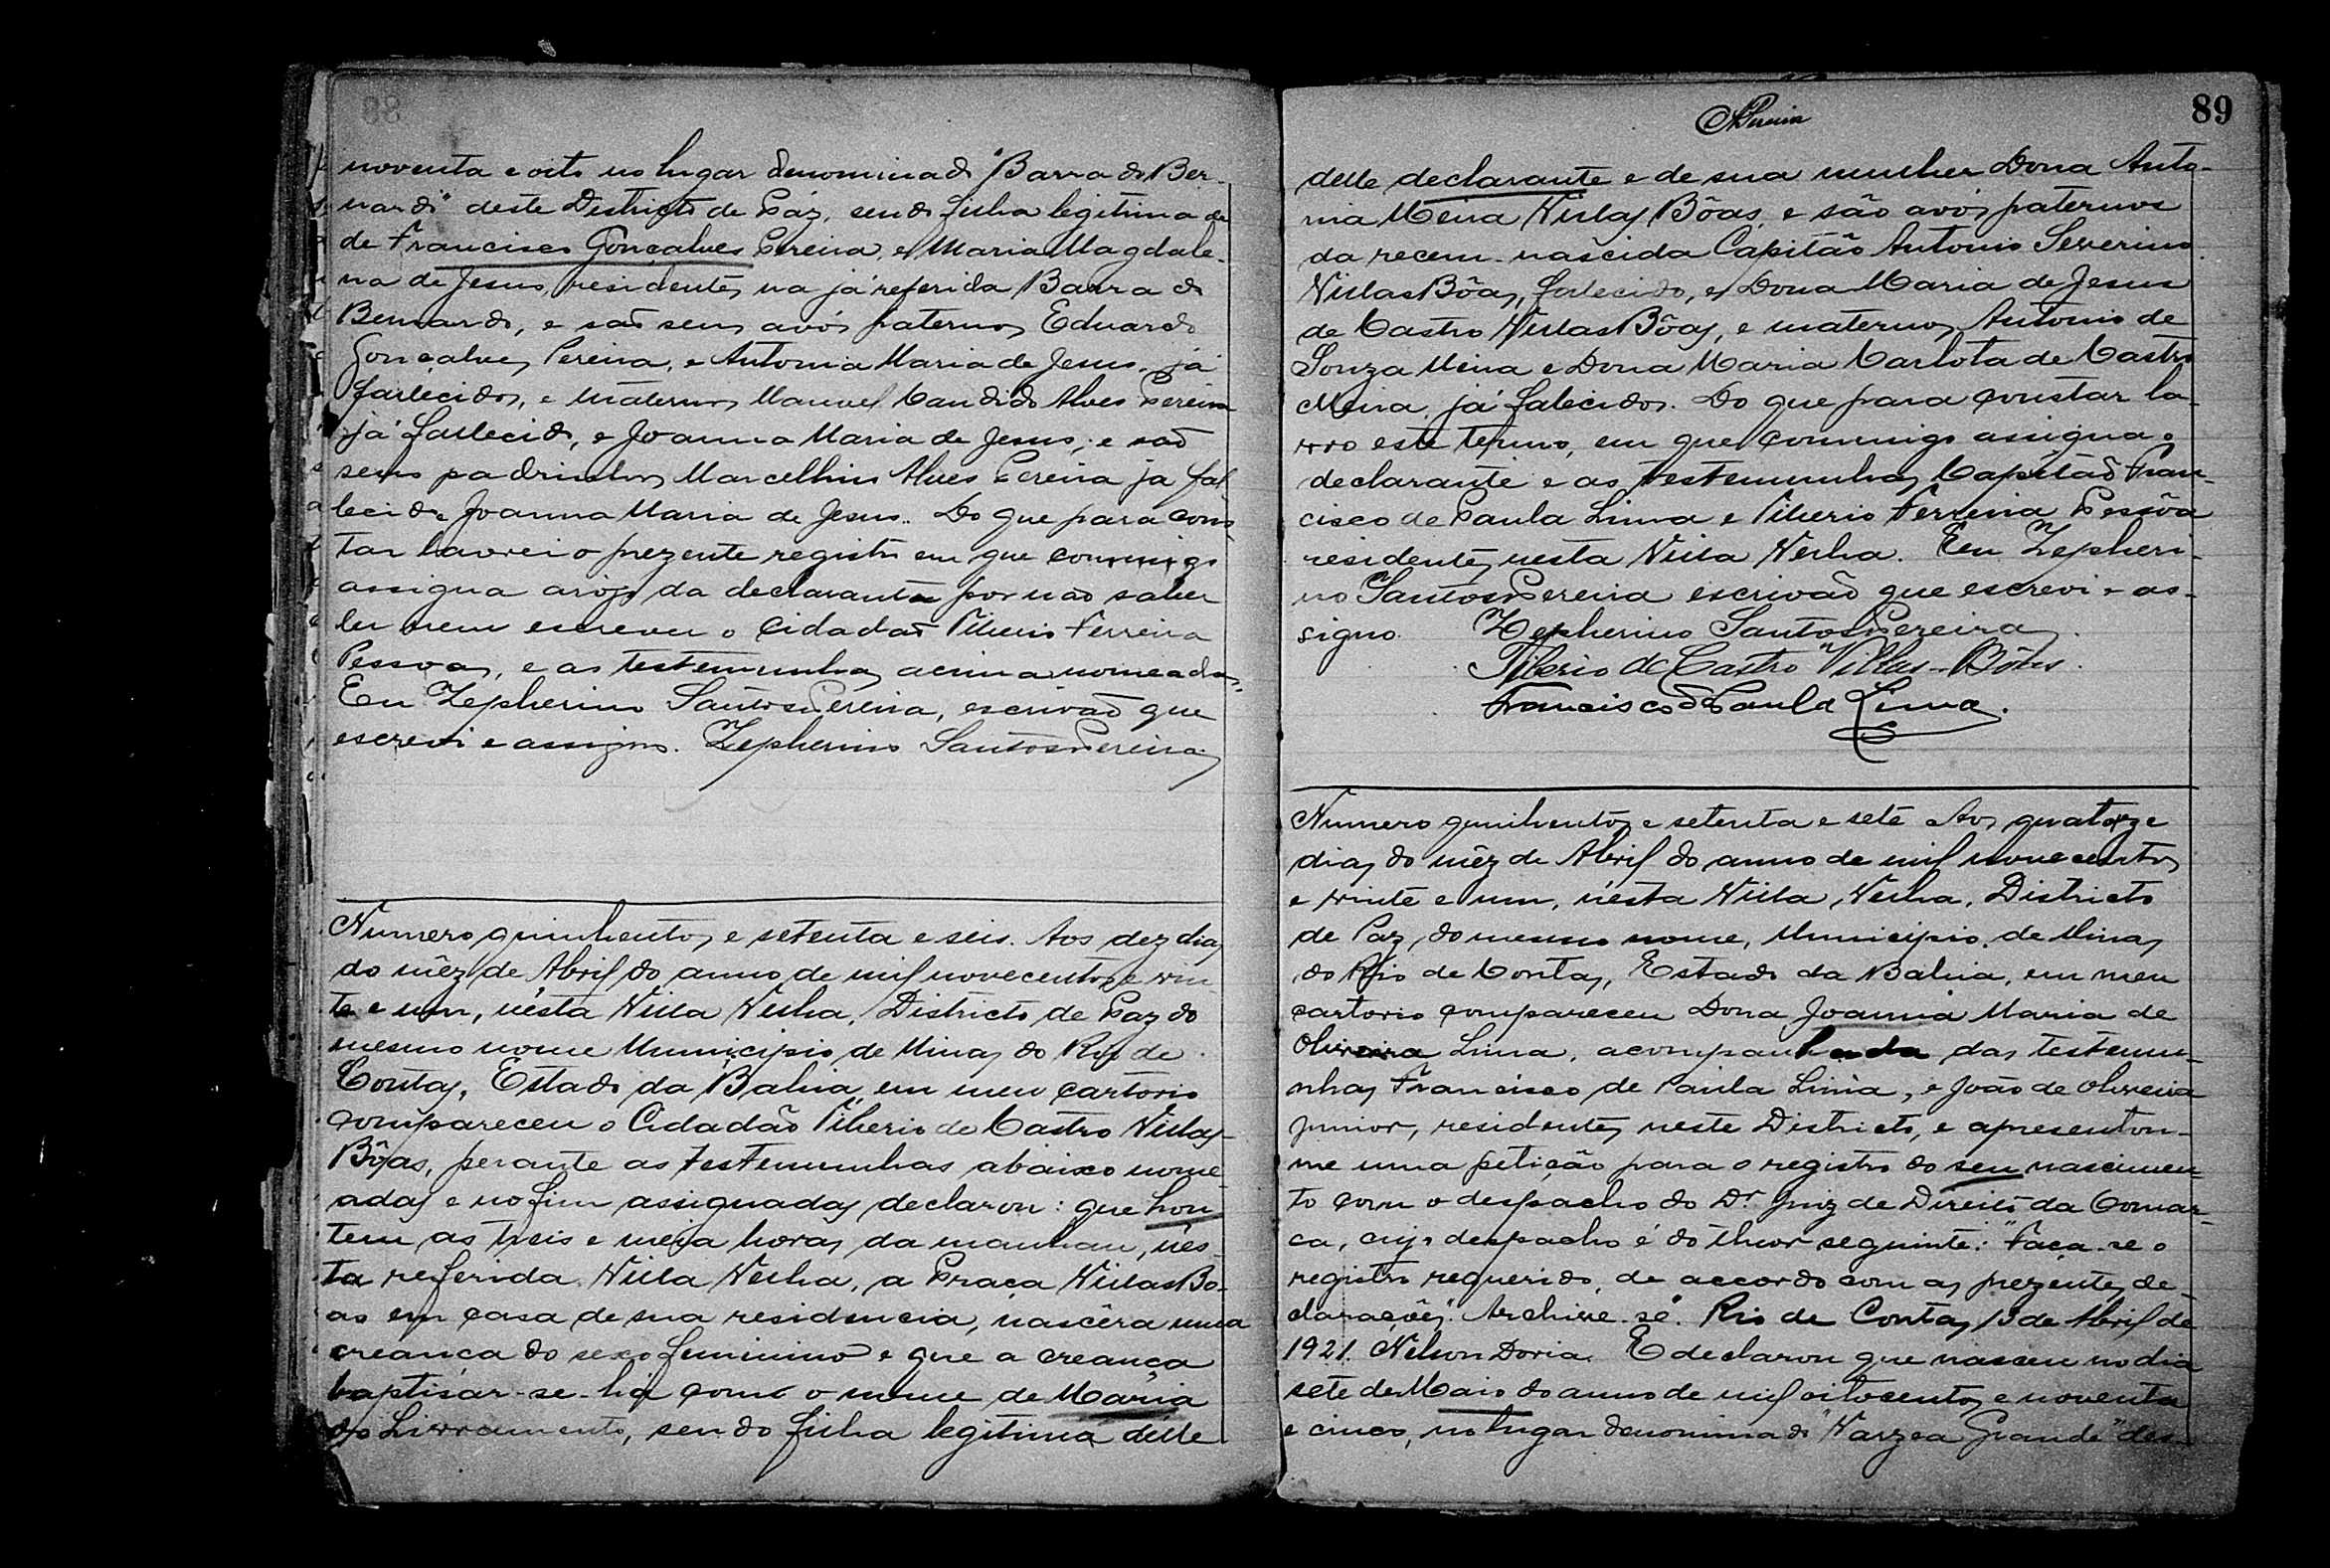 noventa e oito no lugar denominado "Barra do Ber-
nardo" deste Districto de Paz, sendo filha legitima de
de Francisco Gonçalves Pereira, e Maria Magdale-
na de Jesus, residentes na já referida Barra do
Bernardo, e são seus avós paternos Eduardo
Gonçalves Pereira, e Antonia Maria de Jesus, já
fallecidos, e maternos Manuel Candido Alves Pereira
já fallecido, e Joanna Maria de Jesus; e são
seus padrinhos Marcellino Alves Pereira já fal-
lecido e Joanna Maria de Jesus. Do que para cons-
tar lavrei o prezente registro em que commigo
assigna arogo da declarante por não saber
ler nem escrever o Cidadão Tiberio Ferreira
Pessoa, e as testemunhas acima nomeadas.
Eu Zepherino Santos Pereira, escrivão que
escrevi e assigno. Zepherino Santos Pereira
Numero quinhentos e setenta e seis. Aos dez dias
do mêz de Abril do anno de mil novecentos e vin-
te e um, nésta Villa Velha, Districto de Paz do
mesmo nome Municipio de Minas do Rio de
Contas, Estado da Bahia, em meu cartorio
compareceu o Cidadão Tiberio de Castro Villas-
Bôas, perante as testemunhas abaixo nome-
adas e no fim assignadas declarou: que hon-
tem as treis e meia horas da manhan, nés-
ta referida Villa Velha, a Praça Villas Bo-
as em casa de sua residencia, nascêra uma
creança do sexo feminino e que a creança
baptisar-se-há com o nome de Maria
do Livramento, sendo filha legitima délle
89
APereira
delle declarante e de sua mulher Dona Anto-
nia Meira Villas Bôas, e são avós paternos
da recem-nascida Capitão Antonio Severino
Villas Bôas, falecido, e Dona Maria de Jesus
de Castro Villas Bôas, e maternos Antonio de
Souza Meira e Dona Maria Carlota de Castro
Meira, já falecidos. Do que para constar la-
vro este termo, em que commigo assigna o
declarante e as testemunhas Capitão Fran-
cisco de Paula Lima e Tiberio Ferreira Pessôa
residentes nesta Villa Velha. Eu Zepheri-
no Santos Pereira escrivão que escrevi e as-
signo. Zepherino Santos Pereira.
Tiberio de Castro Villas-Bôas.
Francisco de Paula Lima.
Numero quinhentos e setenta e sete Aos quatorze
dias do mêz de Abril do anno de mil novecentos
e vinte e um, nésta Villa Velha, Districto
de Paz, do mesmo nome, Municipio, de Minas
do Rio de Contas, Estado da Bahia, em meu
cartorio compareceu Dona Joanna Maria de
Oliveira Lima, acompanhada das testemu-
nhas Francisco de Paula Lima, e João de Oliveira
Junior, residentes neste Districto, e apresentou-
me uma petição para o registro do seu nascimen-
to com o despacho do Dr. Juiz de Direito da Comar-
ca, cujo despacho é do theor seguinte: "Faça-se o
registro requerido, de accordo com as prezentes de-
clarações". Archive-se". Rio de Contas, 13 de Abril de
1921. Nelson Doria. E declarou que nasceu no dia
sete de Maio do anno de mil oitocentos e noventa
e cinco, no lugar denominado "Varzea Grande" des-